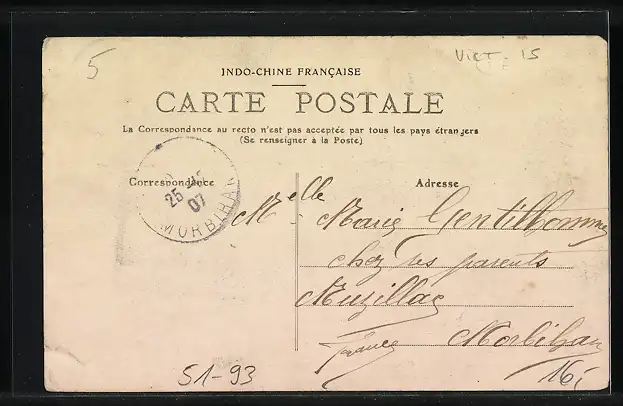 5
VIET. 15
INDO-CHINE FRANÇAISE
CARTE POSTALE
La Correspondance au recto n'est pas acceptée par tous les pays étrangers
(Se renseigner à la Poste)
Correspondance
Adresse
25
07
MORBIHAN
Melle Marie Gentilhomme
chez ses parents
Muzillac
Morbihan
France
51-93